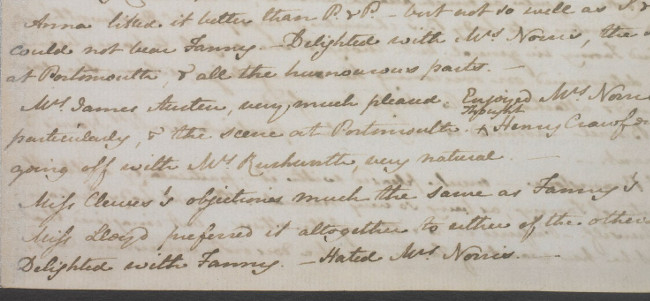 Anna liked it better than P. & P. – but not so well as S. &
could not bear Fanny. – Delighted with Mrs. Norris, the
at Portsmouth, & all the humourous parts. –
Mrs. James Austen, very much pleased. Enjoyed Mrs. Norris
particularly, & the scene at Portsmouth. Thought Henry Crawford's
going off with Mrs. Rushworth, very natural. –
Miss Clewes's objections much the same as Fanny's
Miss Lloyd preferred it altogether to either of the others
Delighted with Fanny. – Hated Mrs. Norris. –